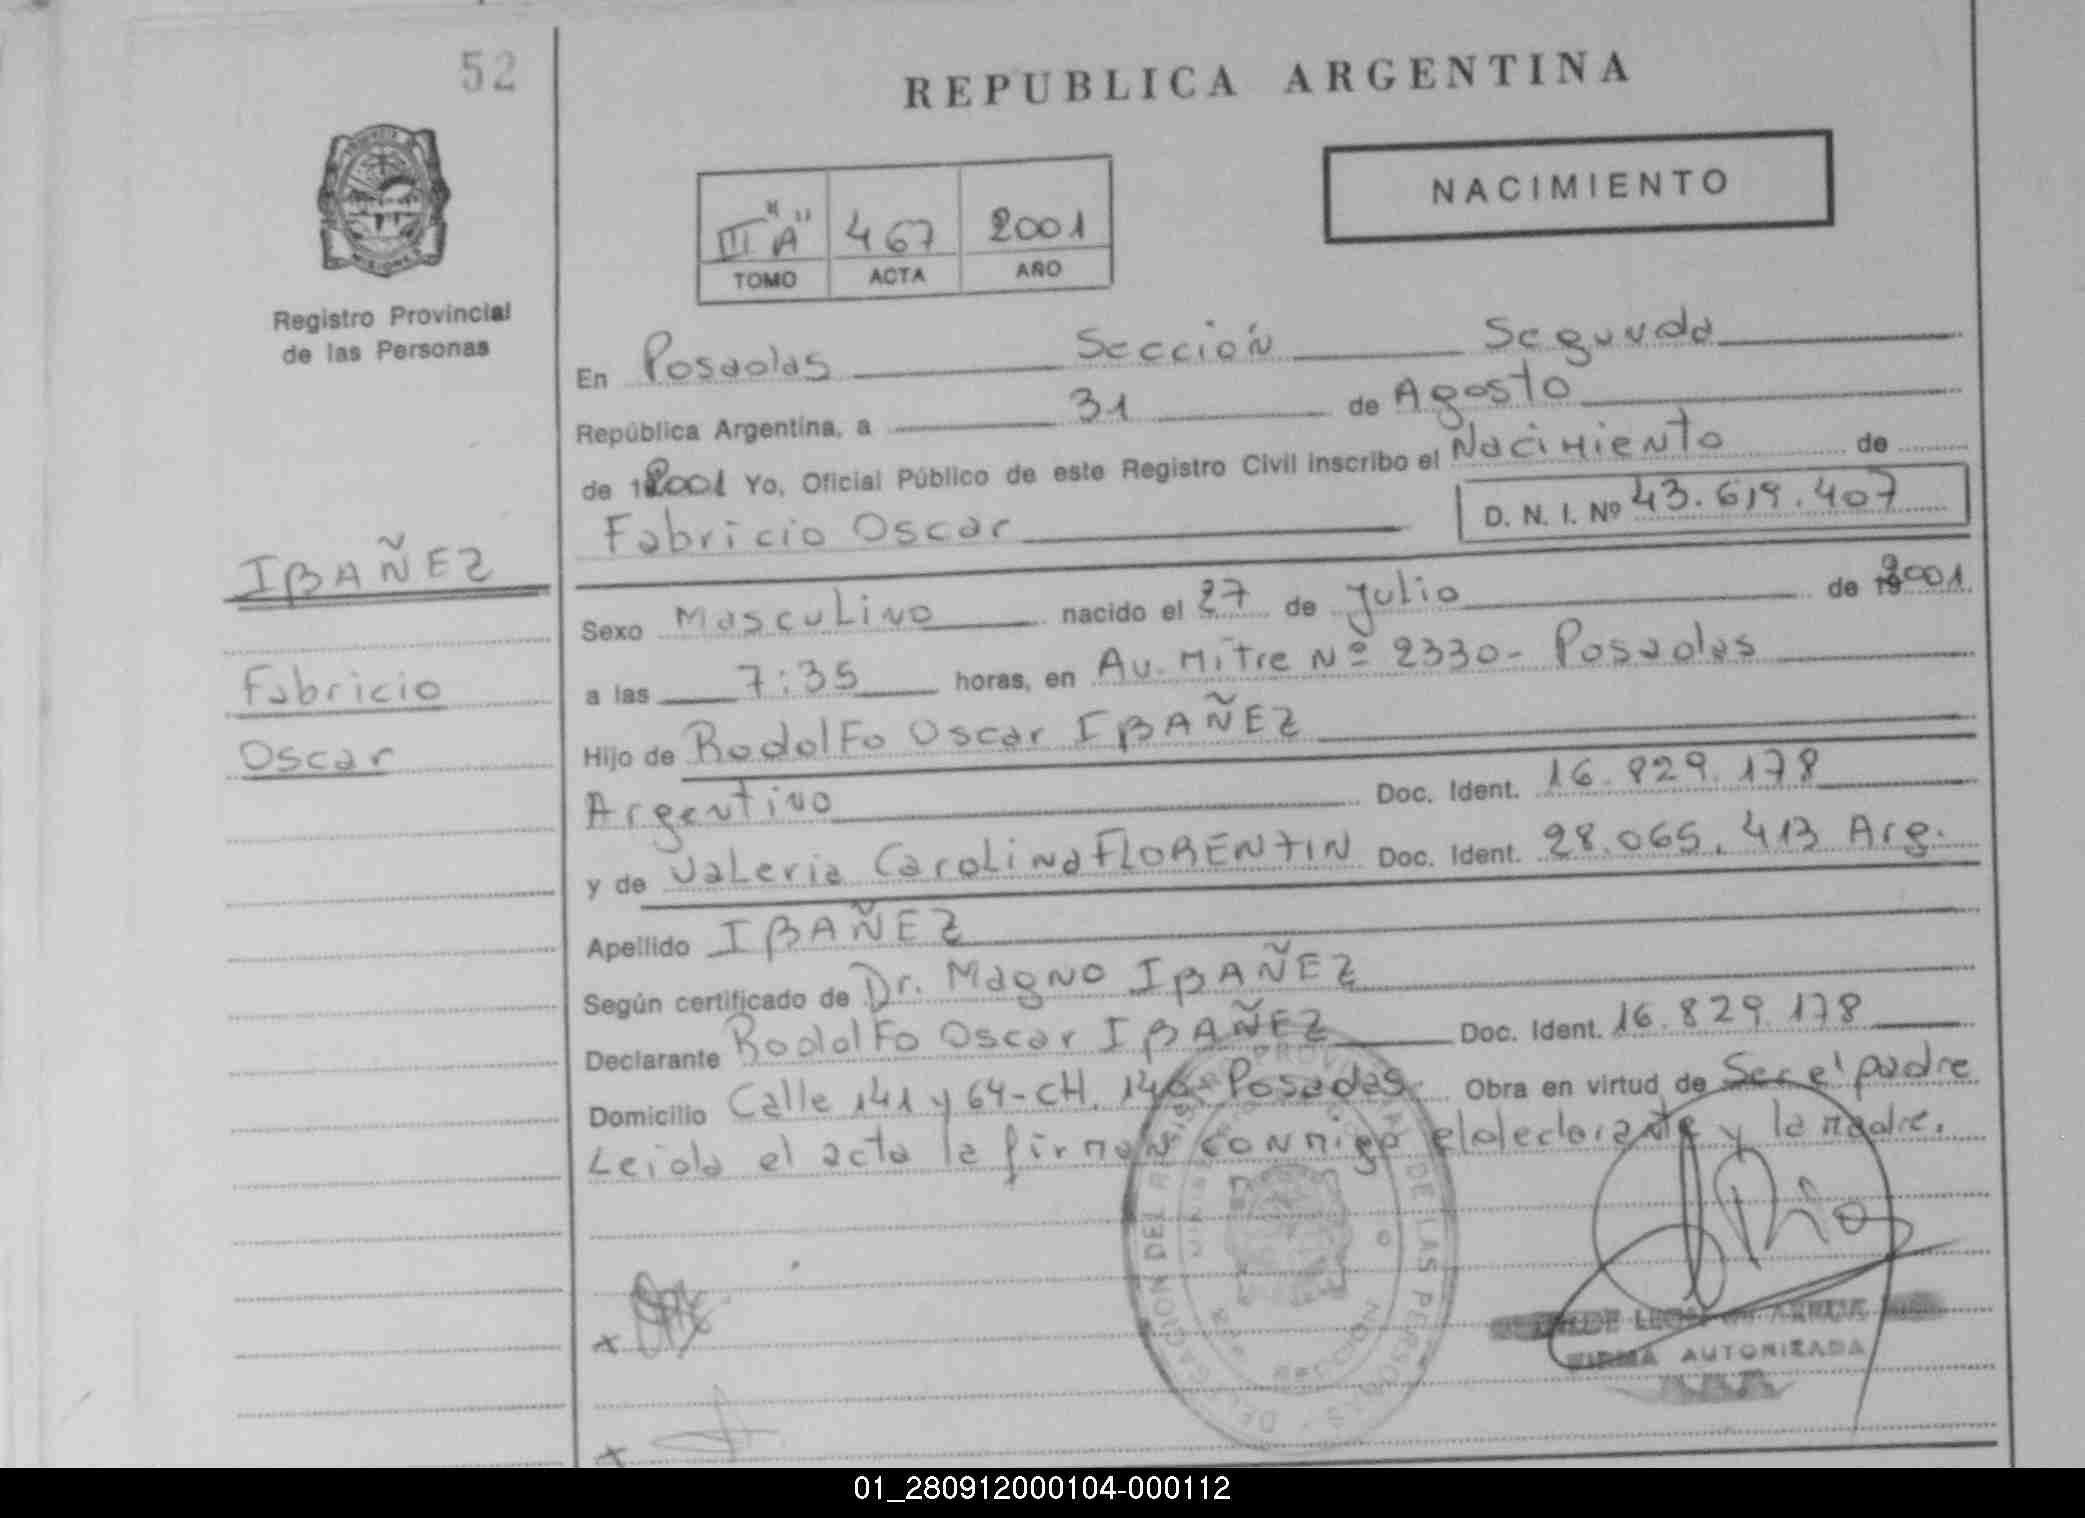 52
REPUBLICA ARGENTINA
NACIMIENTO
III "A" 467 2001
TOMO ACTA AÑO
Registro Provincial
de las Personas
En Posadas Sección Segunda
República Argentina, a 31 de Agosto
de 2001 Yo, Oficial Público de este Registro Civil inscribo el Nacimiento de
Fabricio Oscar D. N. I. Nº 43.619.407
IBAÑEZ
Fabricio
Oscar
Sexo Masculino nacido el 27 de Julio de 2001
a las 7:35 horas, en Av. Mitre Nº 2330- Posadas
Hijo de Rodolfo Oscar IBAÑEZ
Argentino Doc. Ident. 16.829.178
y de Valeria Carolina FLORENTIN Doc. Ident. 28.065.413 Arg.
Apellido IBAÑEZ
Según certificado de Dr. Magno IBAÑEZ
Declarante Rodolfo Oscar IBAÑEZ Doc. Ident. 16.829.178
Domicilio Calle 141 y 64-CH. 146- Posadas. Obra en virtud de Ser el padre
Leida el acta la firman conmigo el declarante y la madre.
DELEGACION DEL REGISTRO PROVINCIAL DE LAS PERSONAS
SECCION
FIRMA AUTORIZADA
01_280912000104-000112